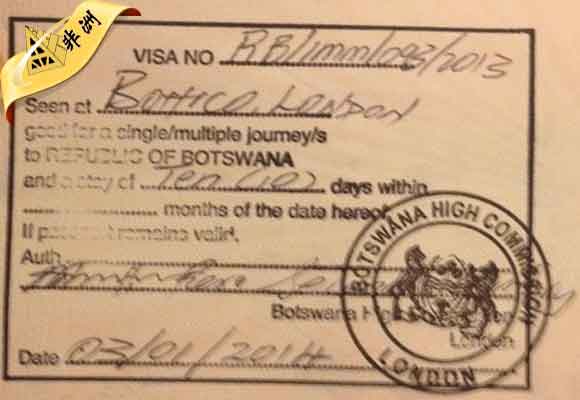 非洲
VISA NO RB/imm/093/2013
Seen at BOHICO, LONDON
good for a single/multiple journey/s
to REPUBLIC OF BOTSWANA
and a stay of Ten (10) days within
months of the date hereof
If passport remains valid.
Auth
Botswana High
London
Date 03/01/2014
BOTSWANA HIGH COMMISSION
LONDON